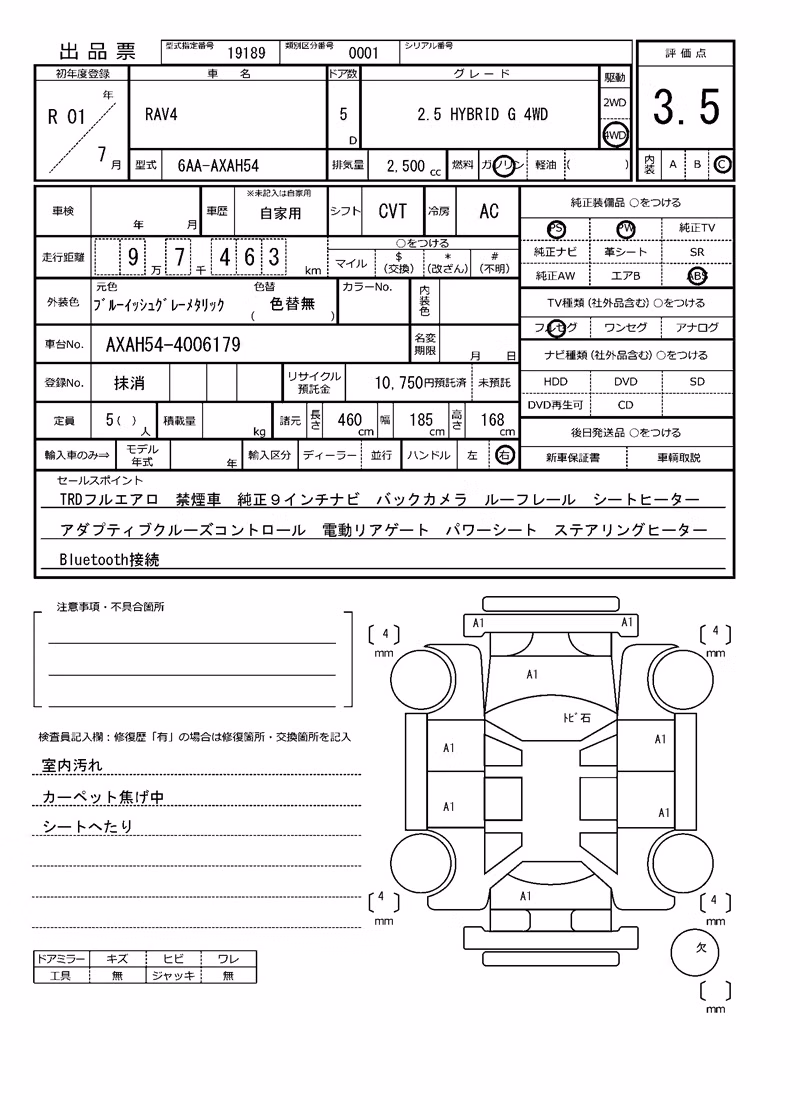 出品票 型式指定番号 19189 類別区分番号 0001 シリアル番号
評価点
3.5
内装 A B C
初年度登録 車名 ドア数 グレード 駆動
R 01 年 7 月 RAV4 5 D 2.5 HYBRID G 4WD 2WD 4WD
型式 6AA-AXAH54 排気量 2,500 cc 燃料 ガソリン 軽油 ( )
車検 年 月 車歴 ※未記入は自家用 自家用 シフト CVT 冷房 AC
走行距離 9 万 7 千 4 6 3 km ○をつける
マイル $(交換) *(改ざん) #(不明)
外装色 元色 ブルーイッシュグレーメタリック 色替 ( 色替無 ) カラーNo. 内装色
車台No. AXAH54-4006179 名変期限 月 日
登録No. 抹消 リサイクル預託金 10,750円預託済 未預託
定員 5( ) 人 積載量 kg 諸元 長さ 460 cm 幅 185 cm 高さ 168 cm
輸入車のみ⇒ モデル年式 年 輸入区分 ディーラー 並行 ハンドル 左 右
純正装備品 ○をつける
PS PW 純正TV
純正ナビ 革シート SR
純正AW エアB ABS
TV種類(社外品含む)○をつける
フルセグ ワンセグ アナログ
ナビ種類(社外品含む)○をつける
HDD DVD SD
DVD再生可 CD
後日発送品 ○をつける
新車保証書 車輌取説
セールスポイント
TRDフルエアロ 禁煙車 純正9インチナビ バックカメラ ルーフレール シートヒーター
アダプティブクルーズコントロール 電動リアゲート パワーシート ステアリングヒーター
Bluetooth接続
注意事項・不具合箇所
検査員記入欄:修復歴「有」の場合は修復箇所・交換箇所を記入
室内汚れ
カーペット焦げ中
シートへたり
ドアミラー キズ ヒビ ワレ
工具 無 ジャッキ 無
A1 A1
[ 4 ] mm [ 4 ] mm
A1
トビ石
A1 A1
A1 A1
A1
[ 4 ] mm [ 4 ] mm
欠
[ ] mm